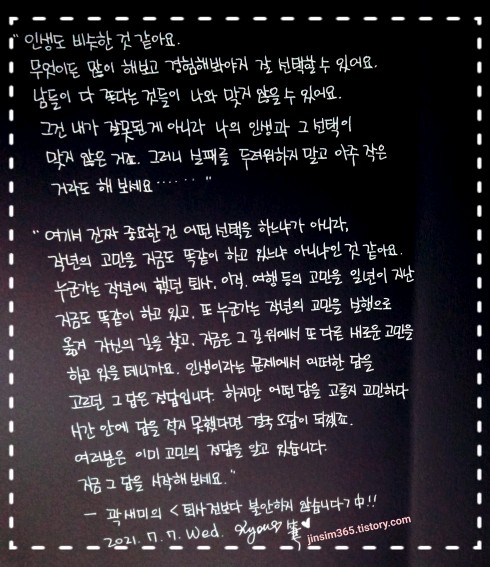 “ 인생도 비슷한 것 같아요.
무엇이든 많이 해보고 경험해봐야지 잘 선택할 수 있어요.
남들이 다 좋다는 것들이 나와 맞지 않을 수 있어요.
그건 내가 잘못된 게 아니라 나의 인생과 그 선택이
맞지 않은 거죠. 그러니 실패를 두려워하지 말고 아주 작은
거라도 해 보세요 ······ ”
“ 여기서 진짜 중요한 건 어떤 선택을 하느냐가 아니라,
작년의 고민을 지금도 똑같이 하고 있느냐 아니냐인 것 같아요.
누군가는 작년에 했던 퇴사, 이직, 여행 등의 고민을 일년이 지난
지금도 똑같이 하고 있고, 또 누군가는 작년의 고민을 실행으로
옮겨 자신의 길을 찾고, 지금은 그 길 위에서 또 다른 새로운 고민을
하고 있을 테니까요. 인생이라는 문제에서 어떠한 답을
고르던 그 답은 정답입니다. 하지만 어떤 답을 고를지 고민하다
시간 안에 답을 적지 못했다면 결국 오답이 되겠죠.
여러분은 이미 고민의 정답을 알고 있습니다.
지금 그 답을 시작해 보세요. ”
— 곽새미의 < 퇴사 전보다 불안하지 않습니다 > 中!!
2021. 7. 7. Wed.
jinsim365.tistory.com